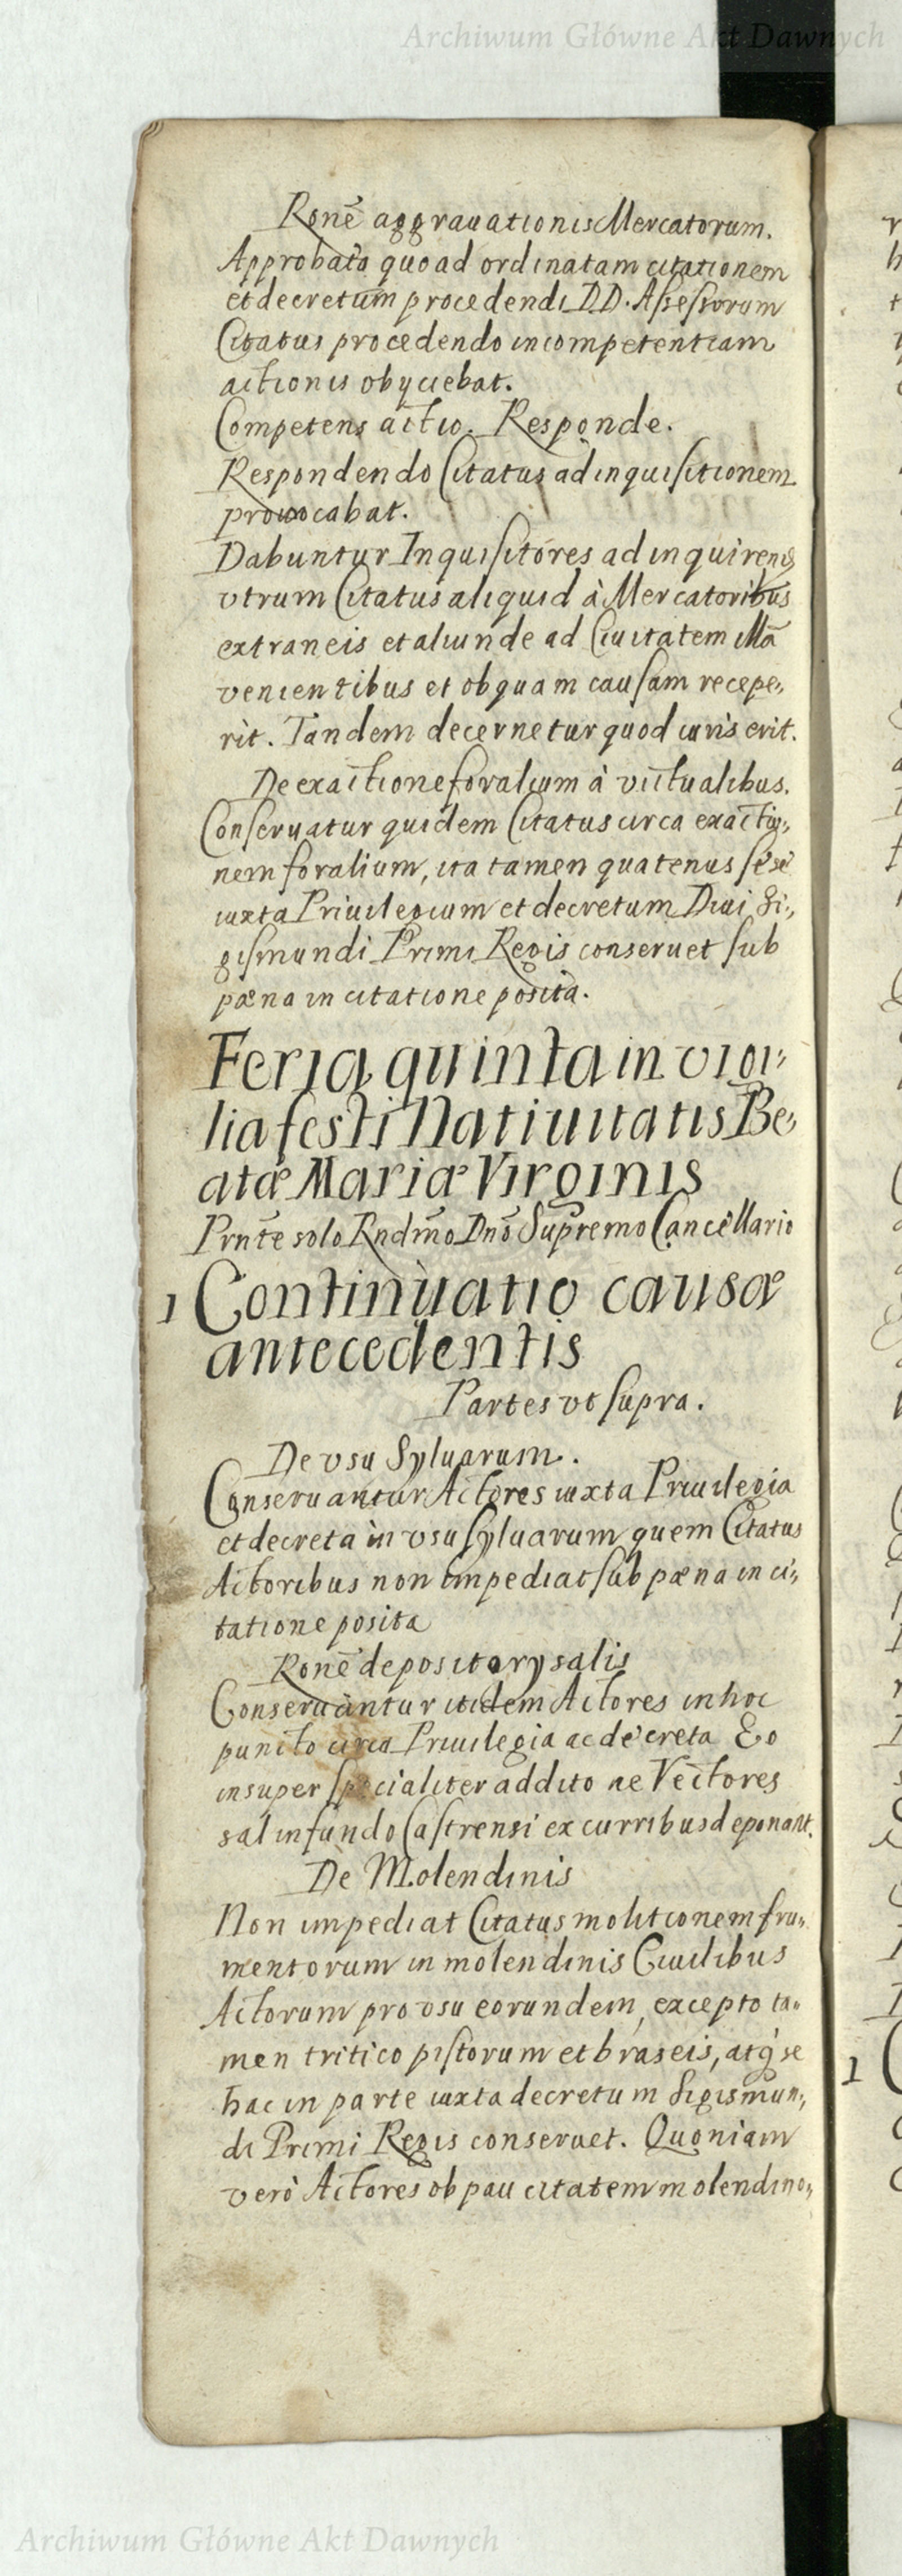 Archiwum Główne Akt Dawnych
Ronē aggrauationis Mercatorum.
Approbato quoad ordinatam citationem
et decretum procedendi DD. Aſseſsorum
Citatus procedendo incompetentiam
actionis obyciebat.
Competens actio. Responde.
Respondendo Citatus ad inquiſitionem
prouocabat.
Dabuntur Inquiſitóres ad inquirend
vtrum Citatus aliquid à Mercatoribus
extraneis et aliunde ad Ciuitatem illā
venientibus et ob quam cauſam recepe,,
rit. Tandem decernetur quod iuris erit.
De exactione foralium à victualibus.
Conſeruatur quidem Citatus circa exactio,,
nem foralium, ita tamen quatenus ſese
iuxta Priuilegium et decretum Diui Si,,
giſmundi Primi Regis conseruet ſub
pæna in citatione posita.
Feria quinta in vigi,,
lia festi Natiuitatis Be,,
atæ Mariæ Virginis
Prnte solo Rndmo Dno Supremo Cancellario
1 Continuatio causæ
antecedentis
Partes vt ſupra.
De vsu Syluarum.
Conseruantur Actores iuxta Priuilegia
et decreta in vsu ſyluarum quem Citatus
Actoribus non impediat ſub pæna in ci,,
tatione posita
Ronē depositorÿ salis
Conseruantur itidem Actores in hoc
puncto circa Priuilegia ac decreta Eo
insuper ſpecialiter addito ne Vectores
sal in fundo Caſtrensi ex curribus deponant.
De Molendinis
Non impediat Citatus molitionem fru,,
mentorum in molendinis Ciuilibus
Actorum pro vsu eorundem, excepto ta,,
men tritico piſtorum et braseis, atq́ se
hac in parte iuxta decretum Sigismun,,
di Primi Regis conseruet. Quoniam
verò Actores ob paucitatem molendino,,
1
Archiwum Główne Akt Dawnych